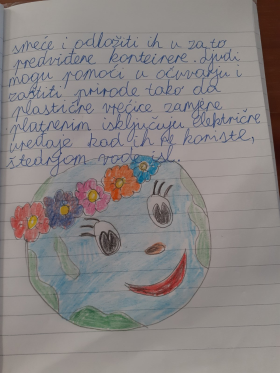 smeće i odložiti ih u za to
predviđene konteinere. Ljudi
mogu pomoći u očuvanju i
zaštiti prirode tako da
plastične vrećice zamjene
platnenim isključuju električne
uređaje kad ih ne koriste,
štednjom vode isl.